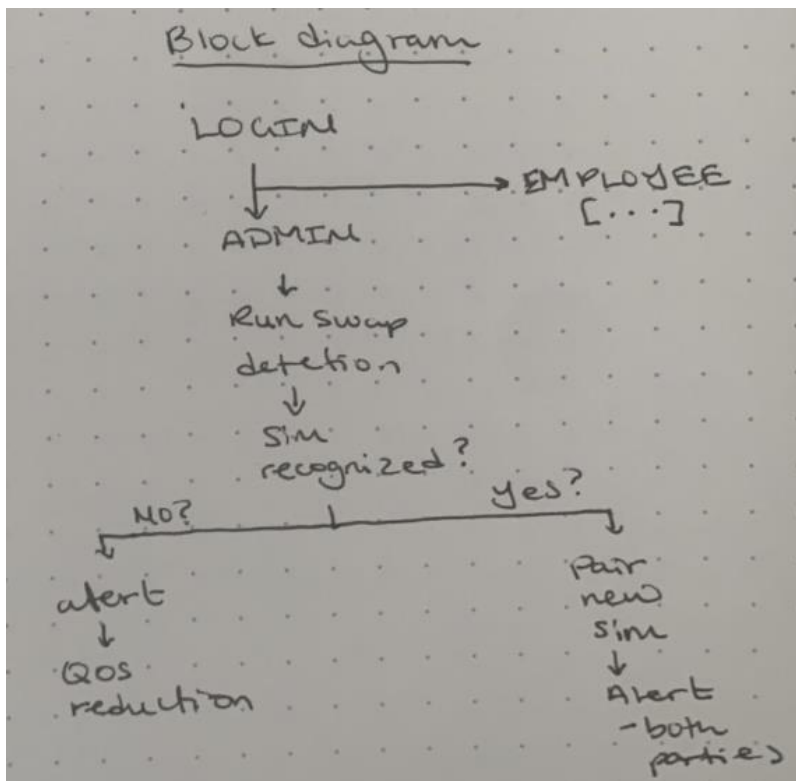 Block diagram
LOGIN
EMPLOYEE
[...]
ADMIN
Run swap
detetion
Sim
recognized?
NO?
Yes?
alert
QOS
reduction
Pair
new
Sim
Alert
- both
parties